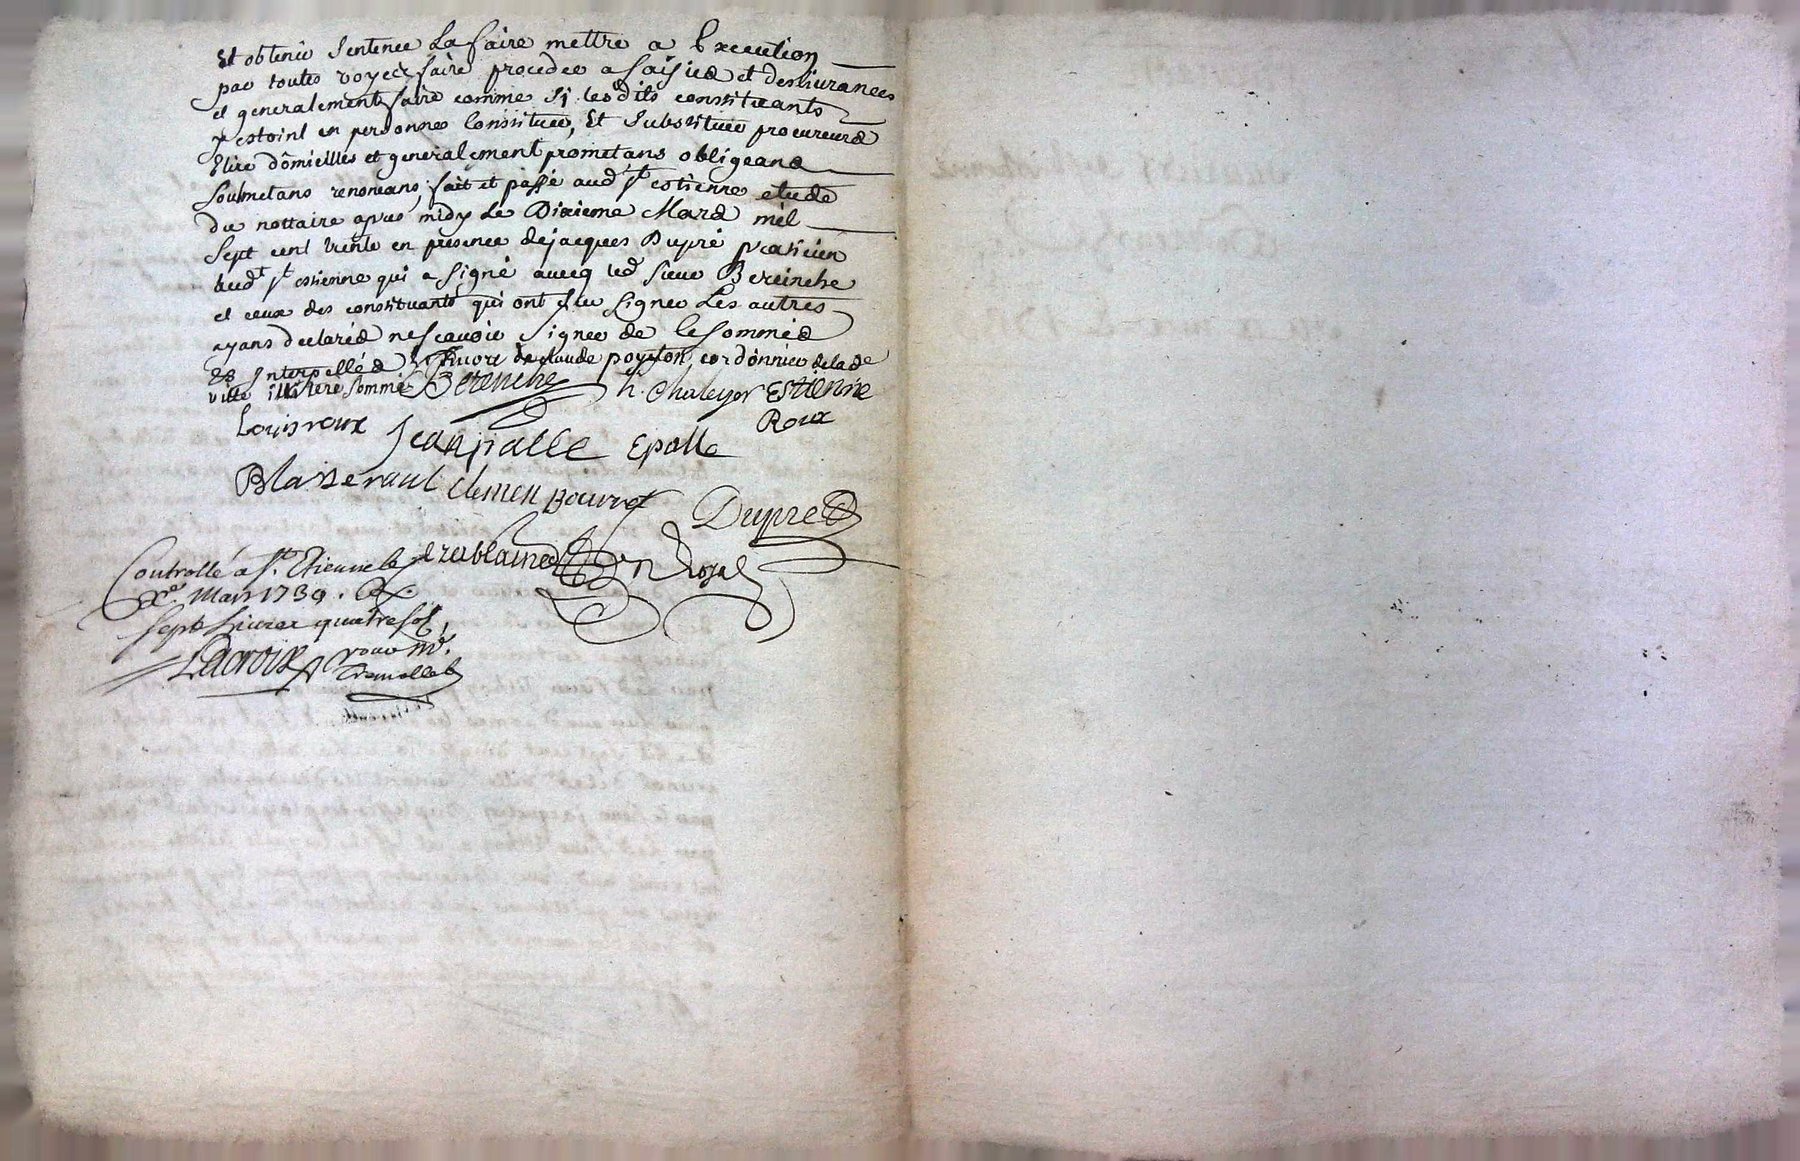 Et obtenir sentence La faire mettre a Execution
par toutes voyes faire proceder a saisies et deslivrances
et generalement faire comme sy lesdits constituants
y estoint en personnes Constituer, Et Substituer procureurs
Elire dômicilles et generalement prometans obligeans
Soubmetans renoncans, fait et passé aud St estienne etude
du nottaire apres midy Le Dixieme Mars mil
Sept cent trente en presence de jacques Dupré praticien
aud St estienne qui a signé avecq led sieur Bereinche
et ceux des constituants qui ont sceu signer Les autres
ayans declarés ne scavoir signer de ce sommés
Et Interpellés de claude poyeton cordônnier de lade
ville illisteré sommé Berenche h. chaleyer Estienne
Louis roux Jean palle Epalle Roux
Blaise raul clemen Dupre
Controllé a St. Etienne le
Xe. Mars 1730.
Sept Livres quatre sol,
Lacroix pour Mr.
Tremollet